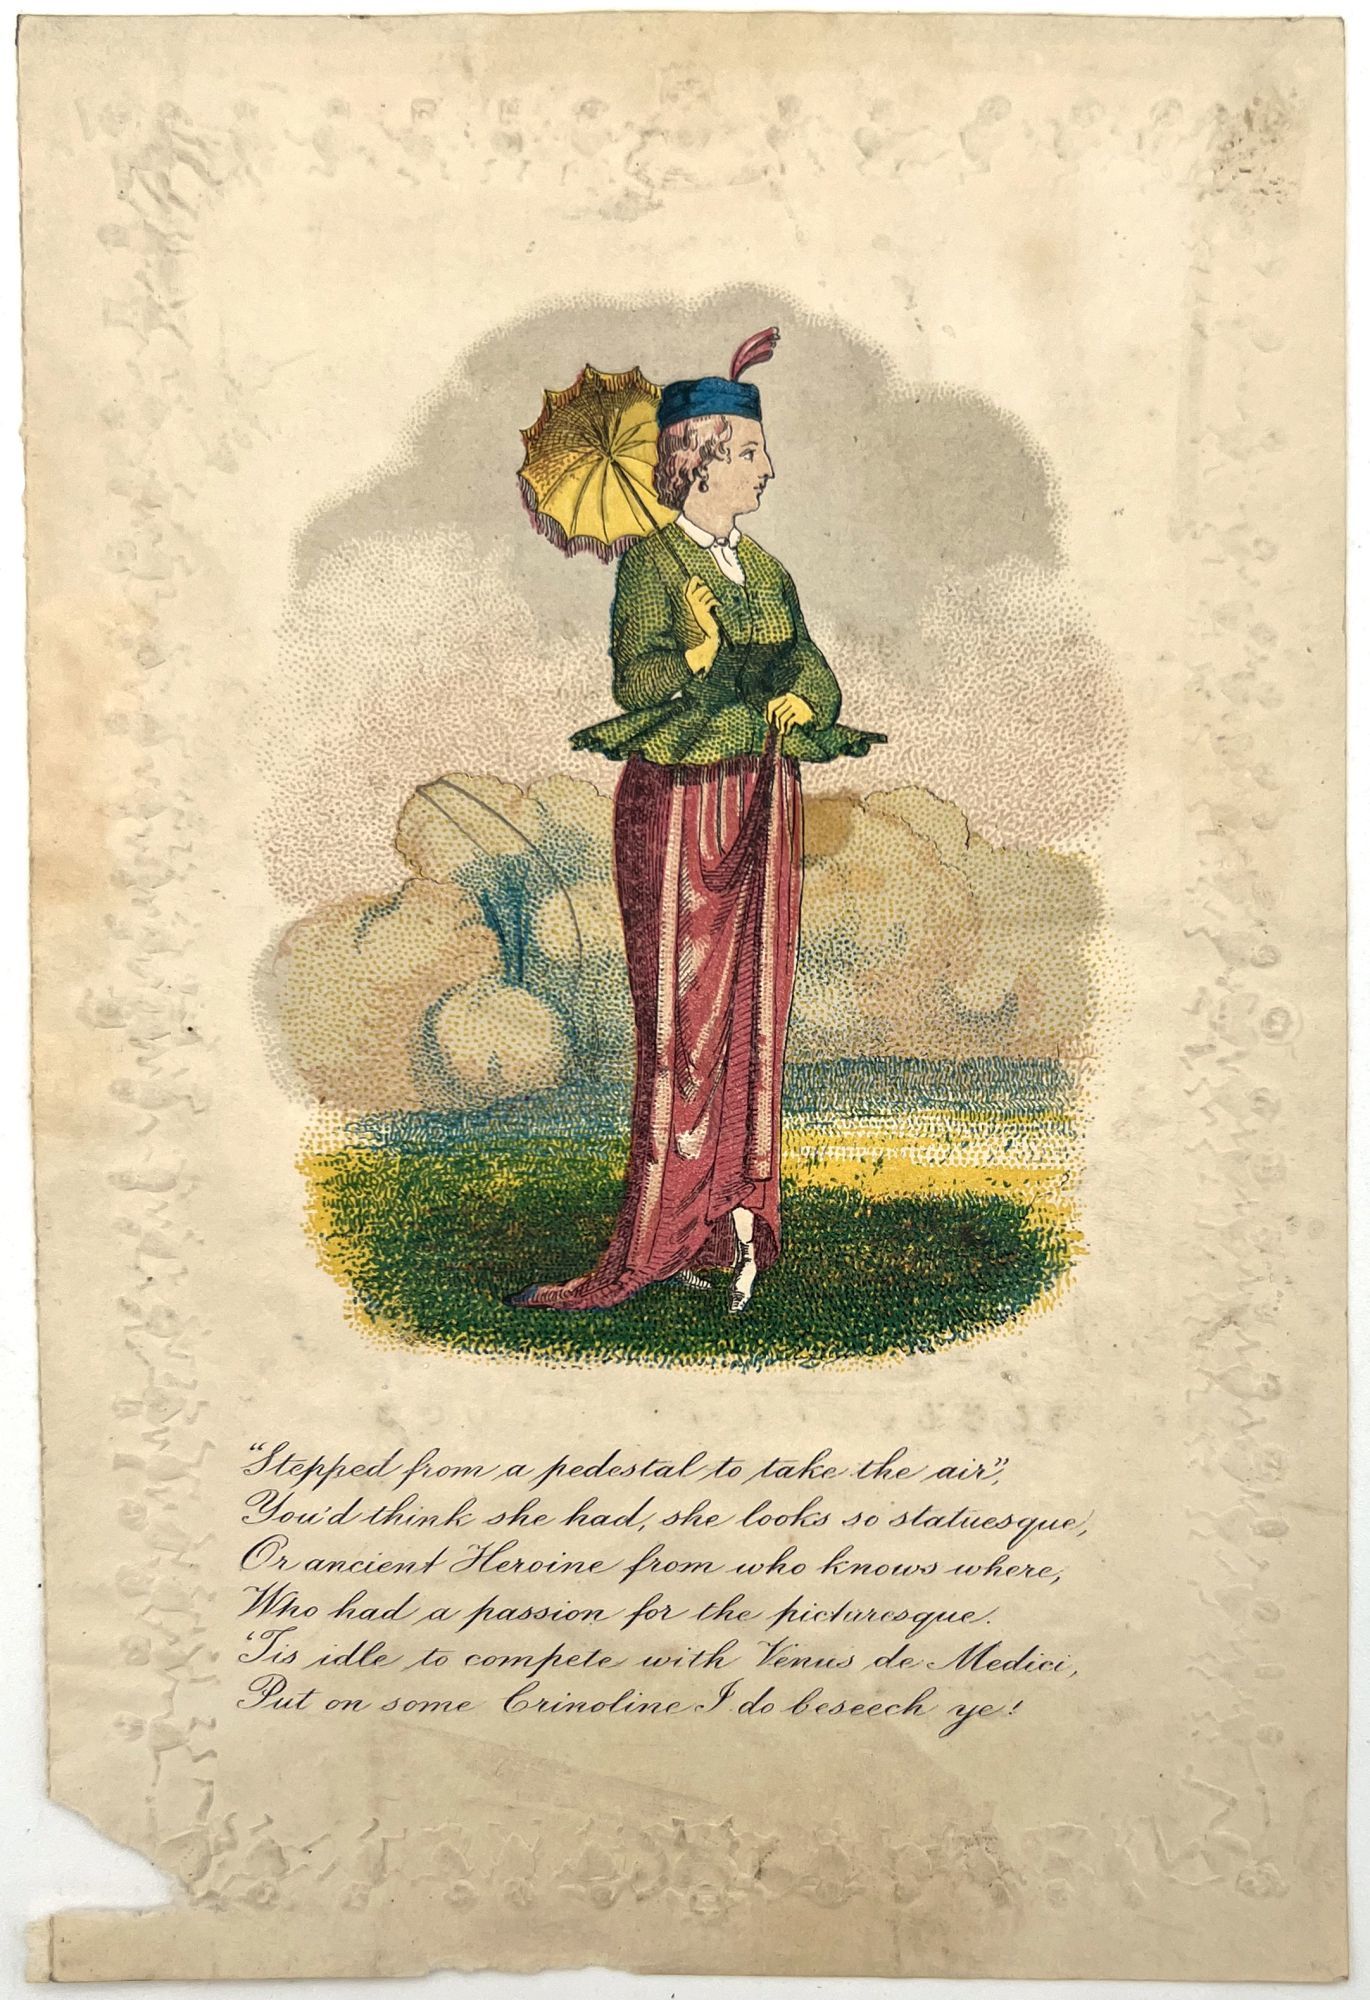 "Stepped from a pedestal to take the air",
You'd think she had, she looks so statuesque,
Or ancient Heroine from who knows where,
Who had a passion for the picturesque.
'Tis idle to compete with Venus de Medici,
Put on some Crinoline I do beseech ye!